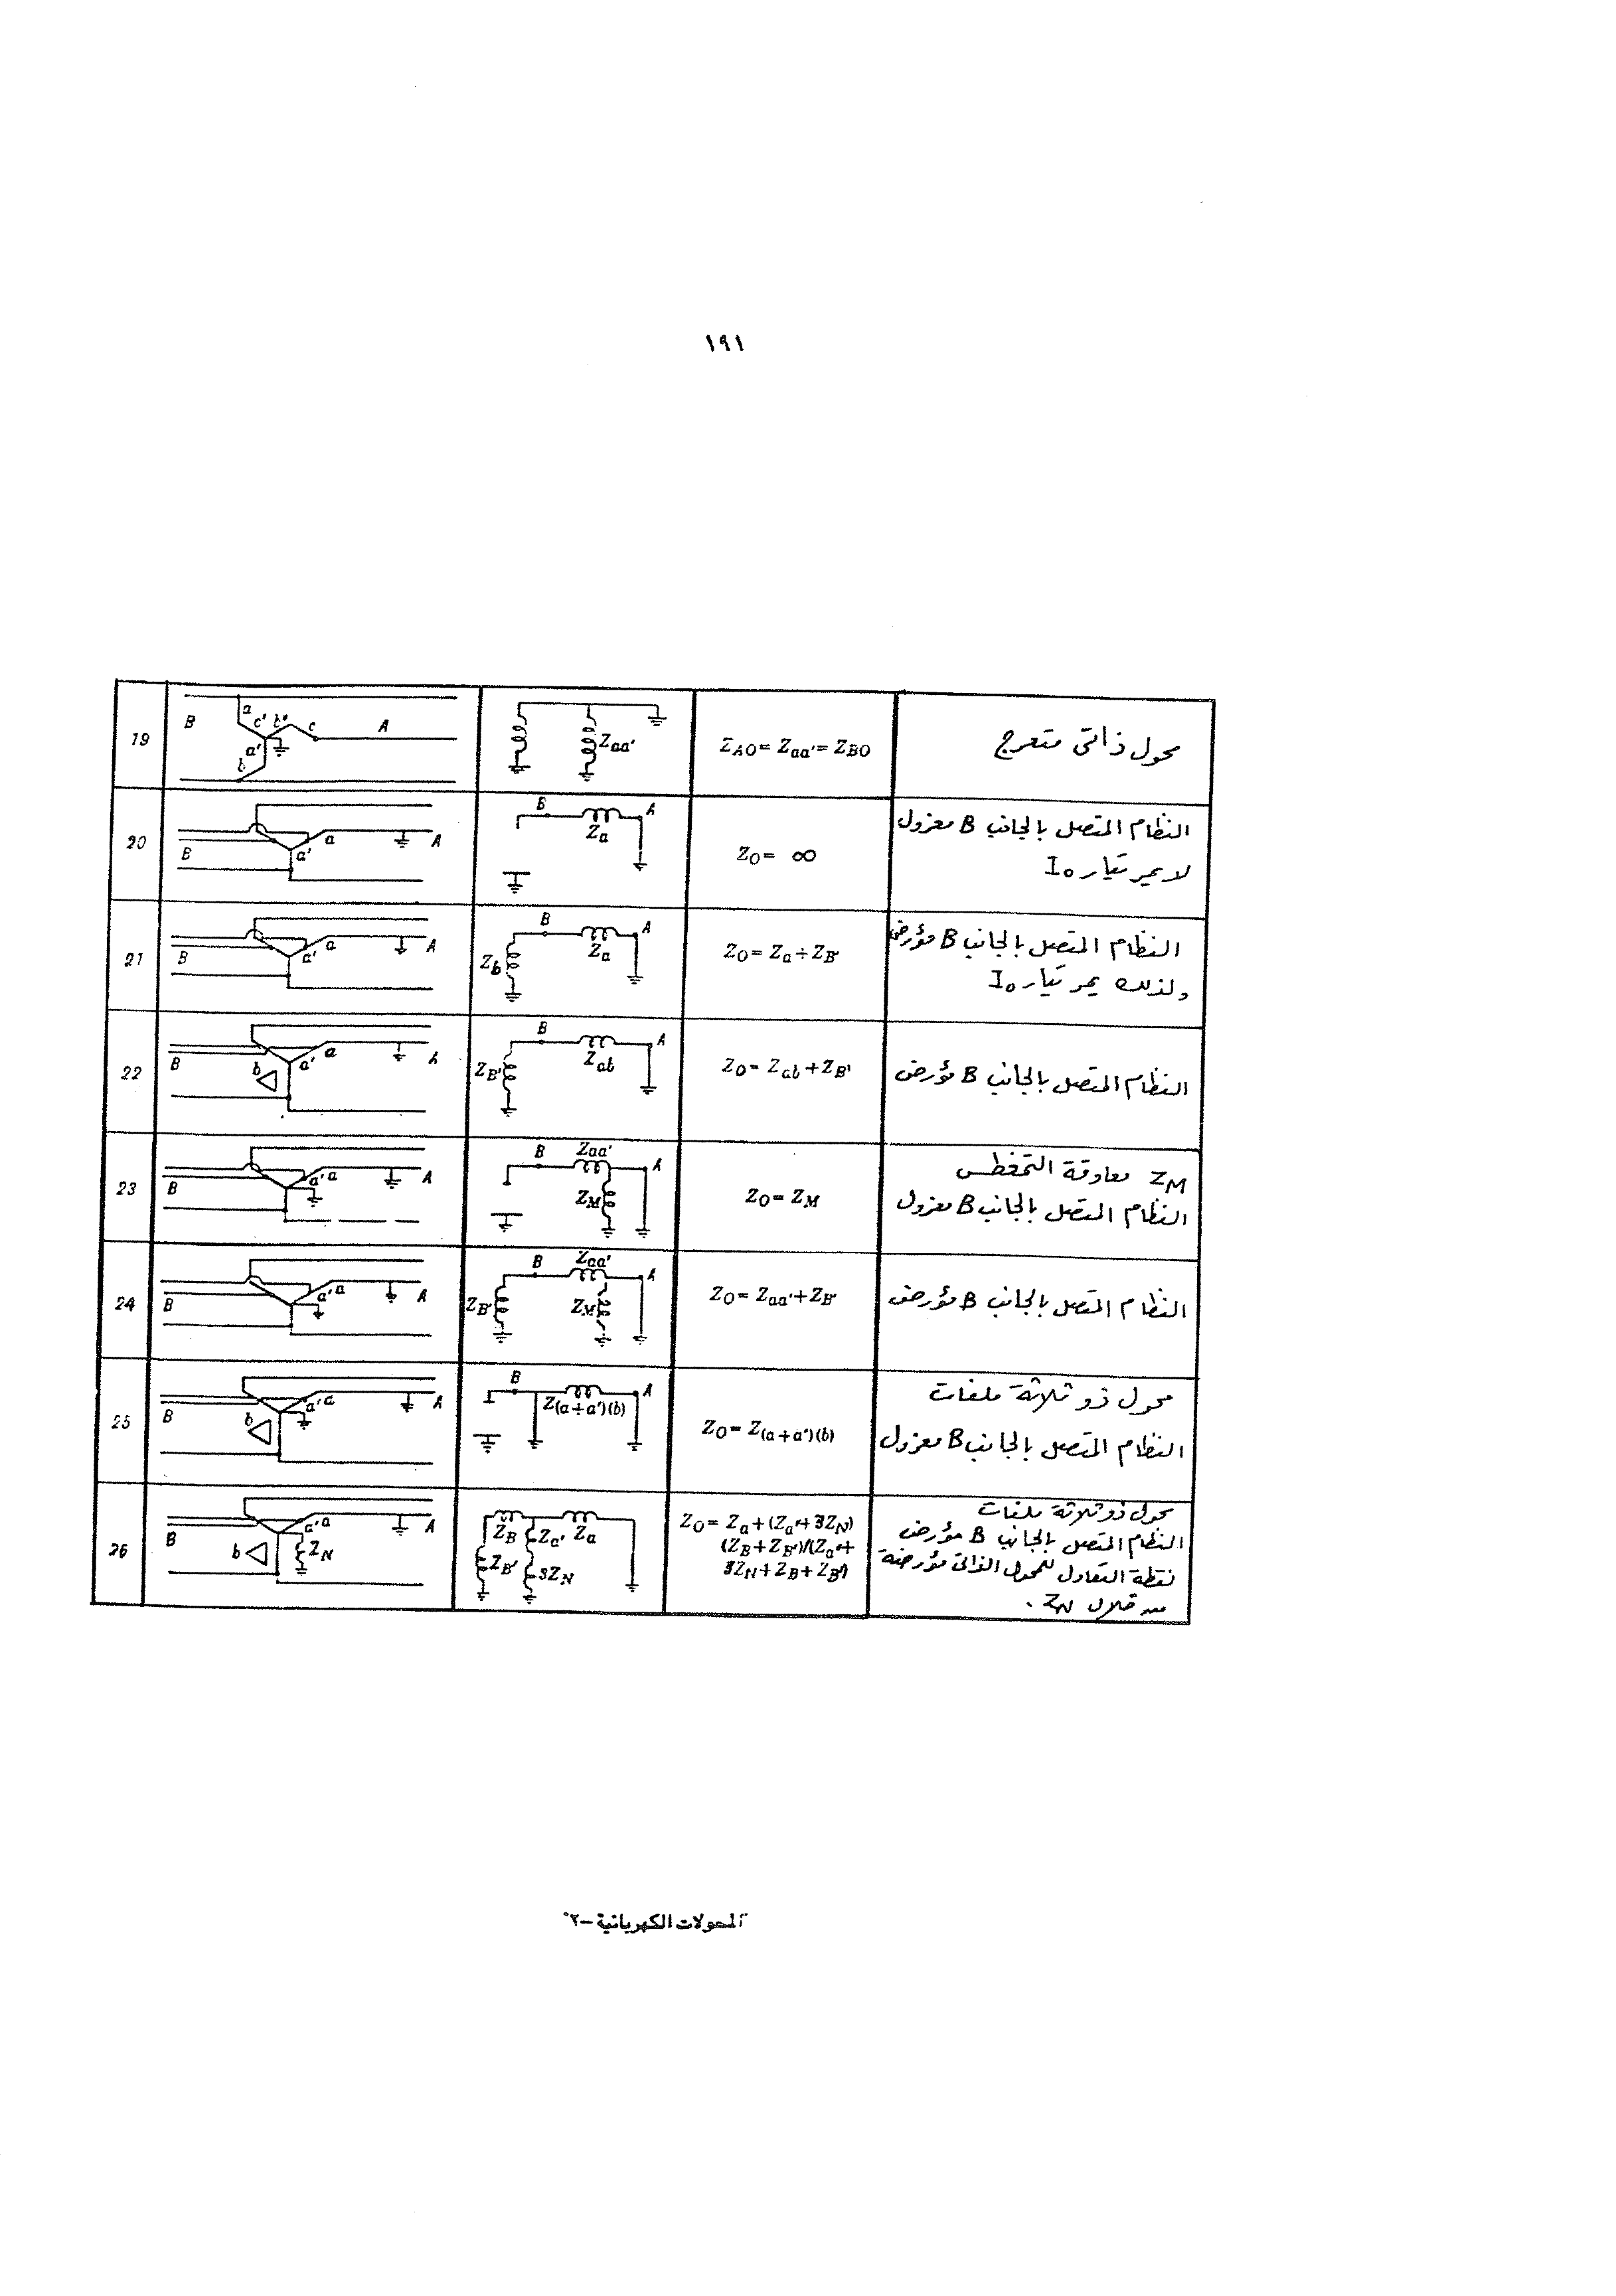 ١٩١
19
B
a
c' b'
c
A
a'
b
Zaa'
ZAO = Zaa' = ZBO
محول ذاتى متعرج
20
B
a
a'
A
B
A
Za
ZO = ∞
النظام المتصل بالجانب B معزول
لا يمر تيار Io
21
B
a
a'
A
B
A
Zb
Za
ZO = Za + ZB'
النظام المتصل بالجانب B مؤرض
ولذلك يمر تيار Io
22
B
b
a
a'
A
B
A
ZB'
Zab
ZO = Zab + ZB'
النظام المتصل بالجانب B مؤرض
23
B
a' a
A
B
Zaa'
A
ZM
ZO = ZM
ZM معاوقة التمغطس
النظام المتصل بالجانب B معزول
24
B
a' a
A
B
Zaa'
A
ZB'
ZM
ZO = Zaa' + ZB'
النظام المتصل بالجانب B مؤرض
25
B
b
a' a
A
B
A
Z(a+a')(b)
ZO = Z(a+a')(b)
محول ذو ثلاثة ملفات
النظام المتصل بالجانب B معزول
26
B
b
a' a
A
ZN
ZB Za' Za
ZB' 3ZN
ZO = Za + (Za' + 3ZN)
(ZB + ZB')/(Za' +
3ZN + ZB + ZB')
محول ذو ثلاثة ملفات
النظام المتصل بالجانب B مؤرض
نقطة التعادل للمحول الذاتى مؤرضة
من خلال ZN .
المحولات الكهربائية -٢